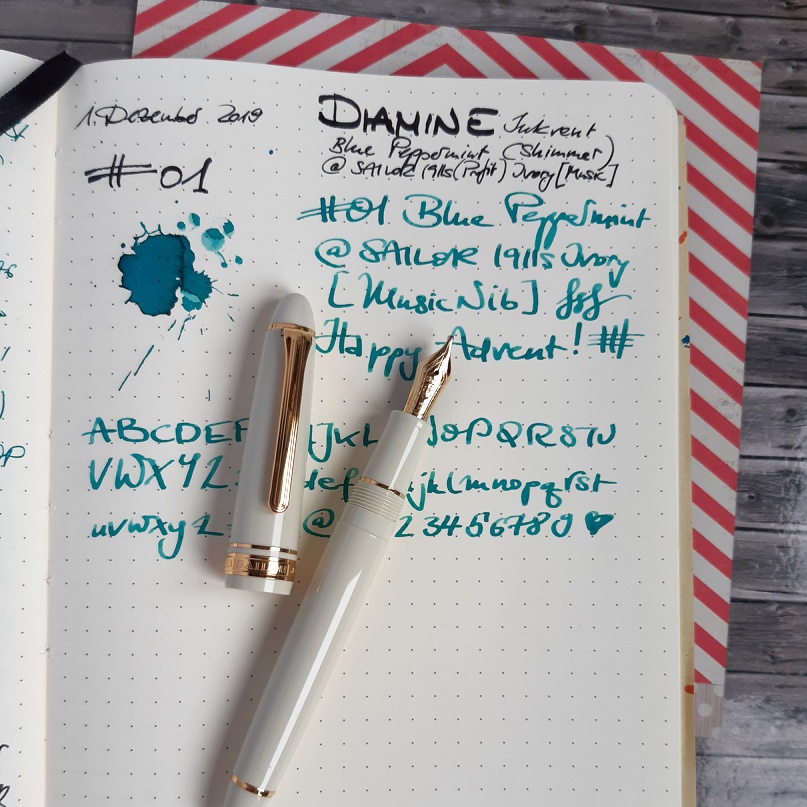 1. Dezember 2019
#01
DIAMINE Inkvent
Blue Peppermint (Shimmer)
@ SAILOR 1911s (Profit) Ivory [Music]
#01 Blue Peppermint
@ SAILOR 1911s Ivory
[Music Nib]
Happy Advent! #
ABCDEF JKL NOPQRSTU
VWXYZ def ijklmnopqrst
uvwxyz @ 234567890 ♥